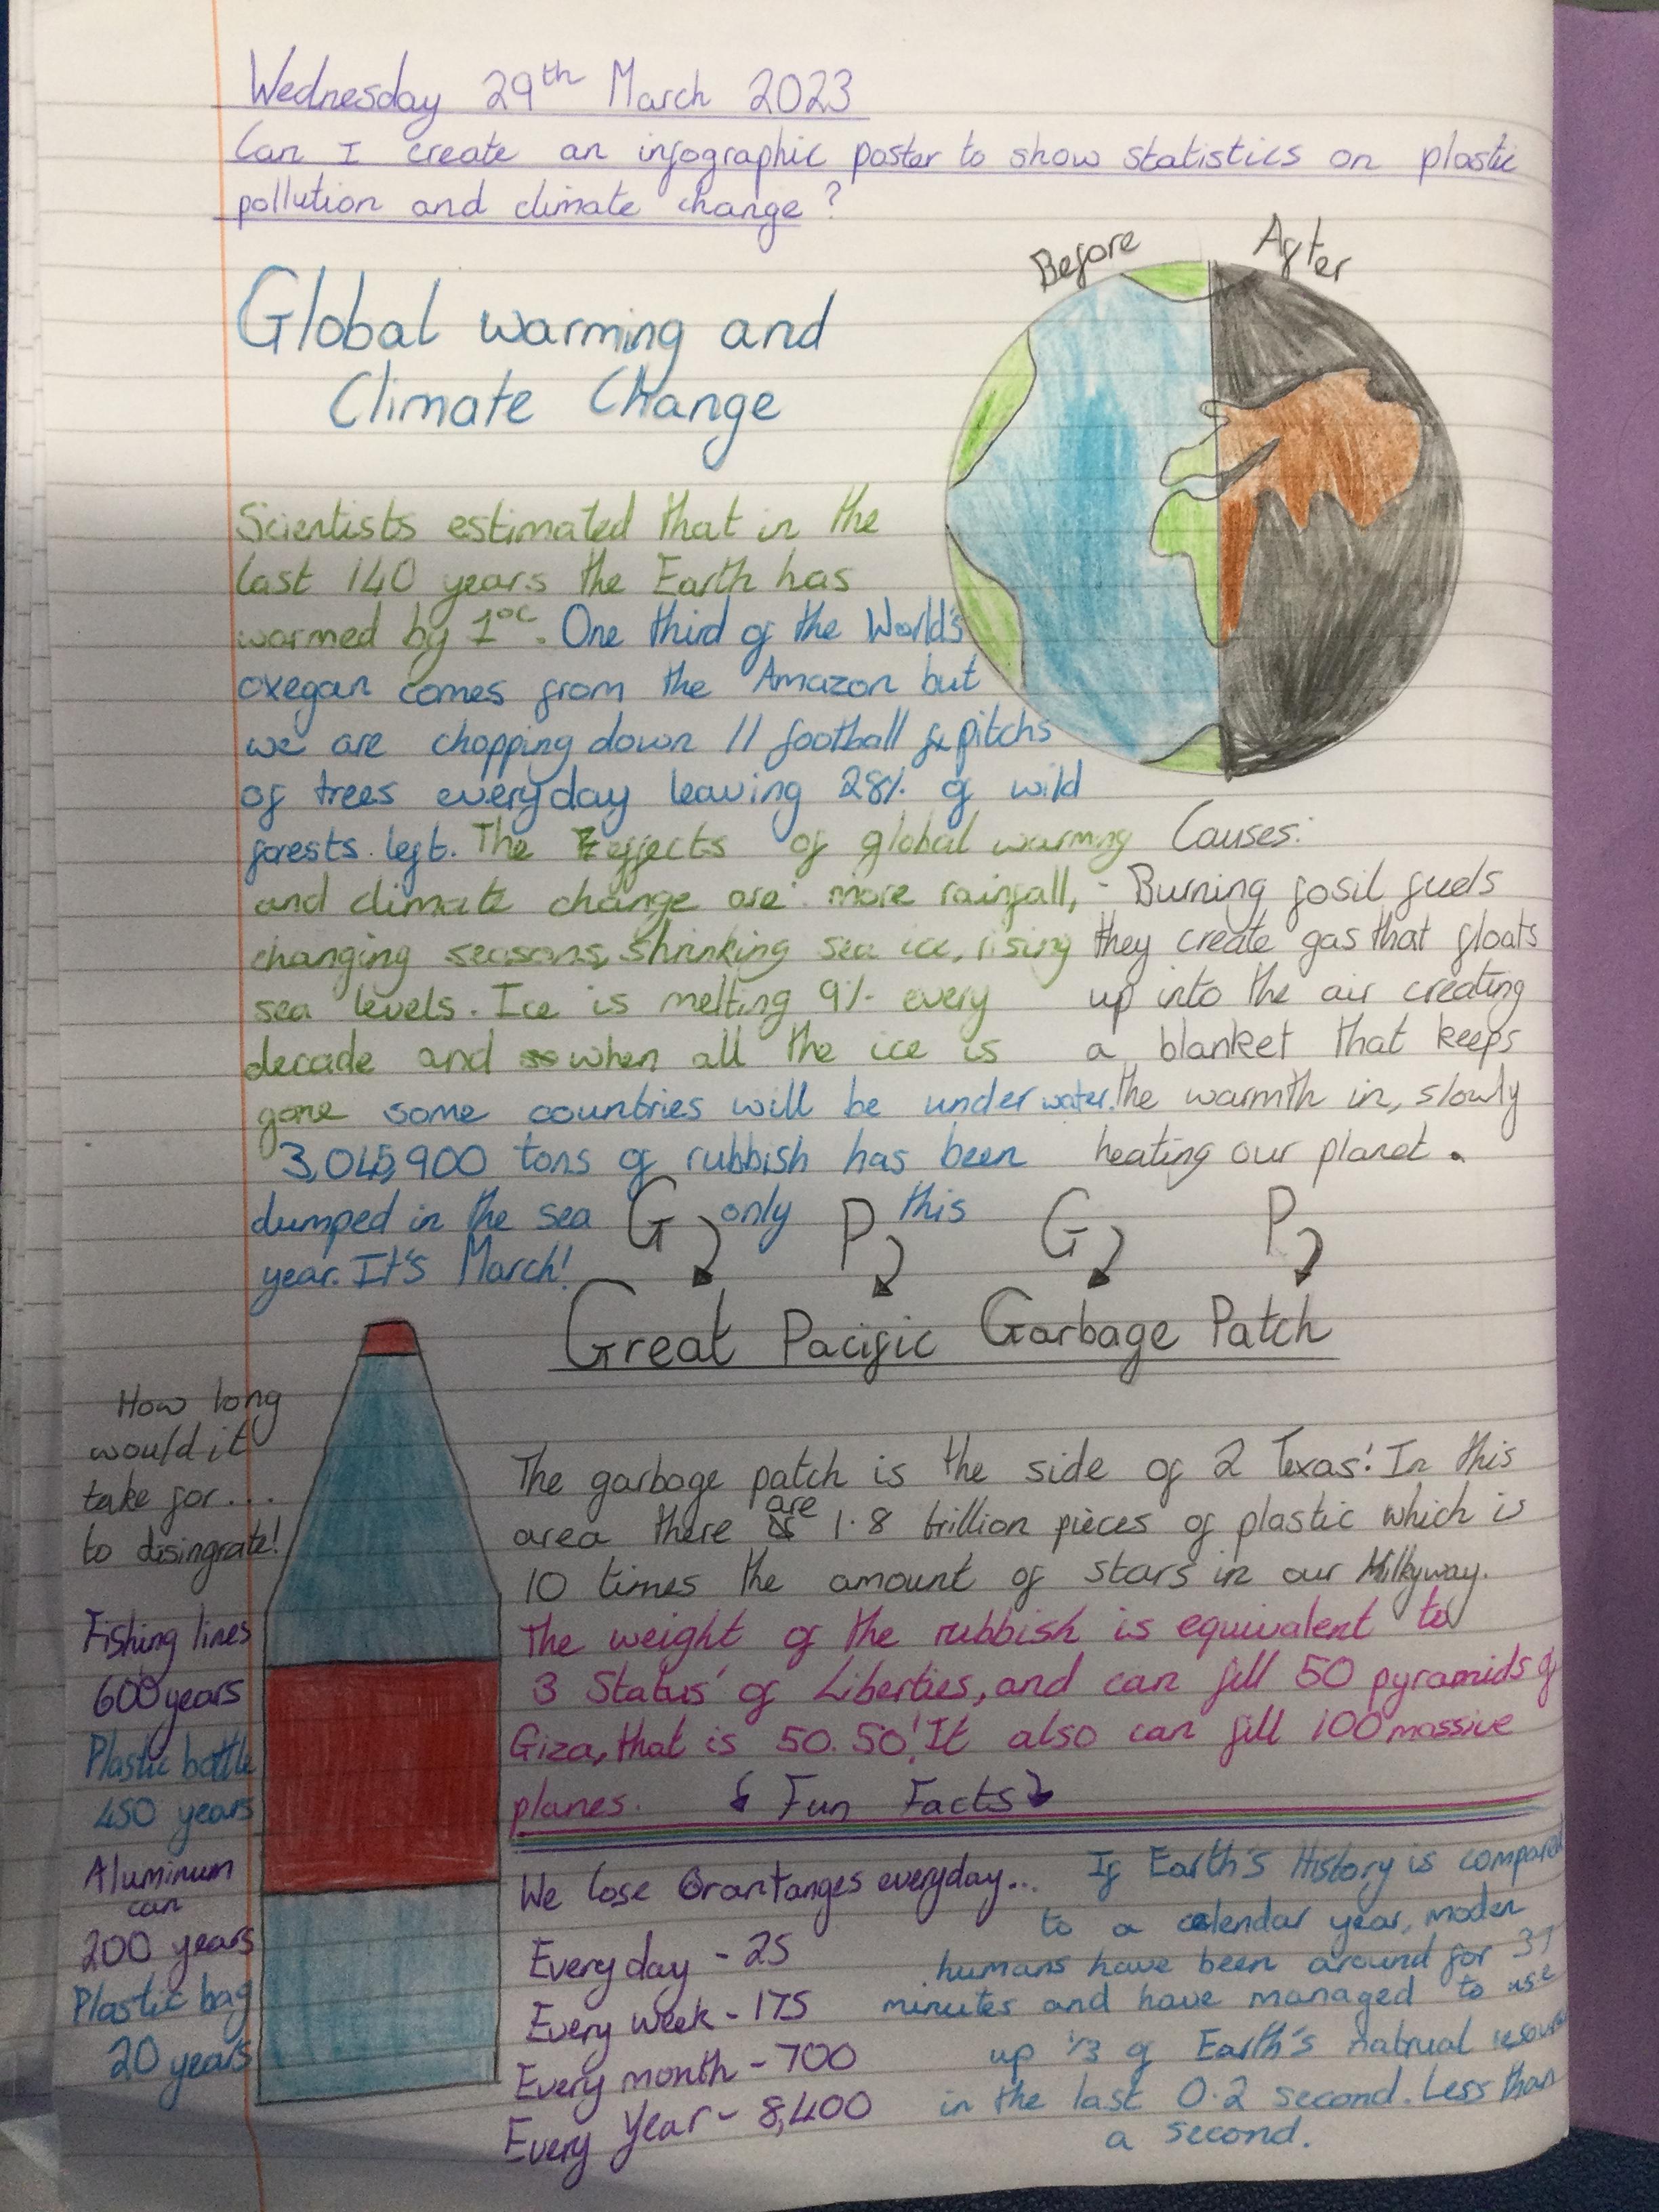 Wednesday 29th March 2023
Can I create an infographic poster to show statistics on plastic
pollution and climate change?
Before After
Global warming and
Climate Change
Scientists estimated that in the
last 140 years the Earth has
warmed by 1°C. One third of the World's
oxegan comes from the Amazon but
we are chopping down 11 football pitchs
of trees everyday leaving 28% of wild
forests left. The effects of global warming
and climate change are: more rainfall,
changing seasons, shrinking sea ice, rising
sea levels. Ice is melting 9% every
decade and when all the ice is
gone some countries will be under water.
3,045,900 tons of rubbish has been
dumped in the sea only this
year. It's March!
Causes:
- Burning fosil fuels
they create gas that floats
up into the air creating
a blanket that keeps
the warmth in, slowly
heating our planet.
G P G P
Great Pacific Garbage Patch
The garbage patch is the side of 2 Texas'! In this
area there are 1.8 trillion pieces of plastic which is
10 times the amount of stars in our Milkyway.
The weight of the rubbish is equivalent to
3 Status' of Liberties, and can fill 50 pyramids of
Giza, that is 50. 50! It also can fill 100 massive
planes.
How long
would it
take for...
to disingrate!
Fishing lines
600 years
Plastic bottle
450 years
Aluminum
can
200 years
Plastic bag
20 years
Fun Facts
We lose Orantanges everyday...
Every day - 25
Every week - 175
Every month - 700
Every Year - 8,400
If Earth's History is compared
to a calendar year, moden
humans have been around for 37
minutes and have managed to use
up 1/3 of Earth's natrual
in the last 0.2 second. Less than
a second.